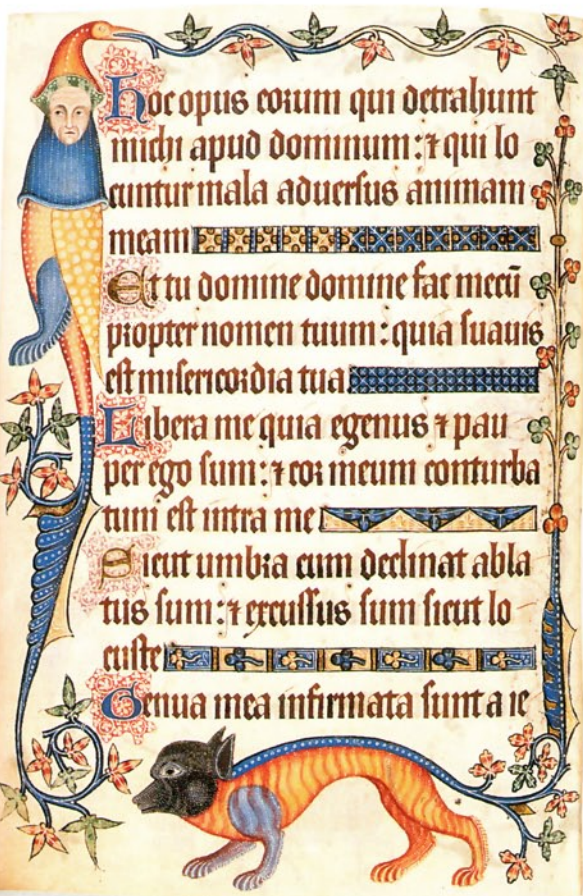 Hoc opus eorum qui detrahunt
michi apud dominum: ⁊ qui lo
cuntur mala aduersus animam
meam
Et tu domine domine fac mecū
propter nomen tuum: quia suauis
est misericordia tua.
Libera me quia egenus ⁊ pau
per ego sum: ⁊ cor meum conturba
tum est intra me
Sicut umbra cum declinat abla
tus sum: ⁊ excussus sum sicut lo
custe
Genua mea infirmata sunt a ie